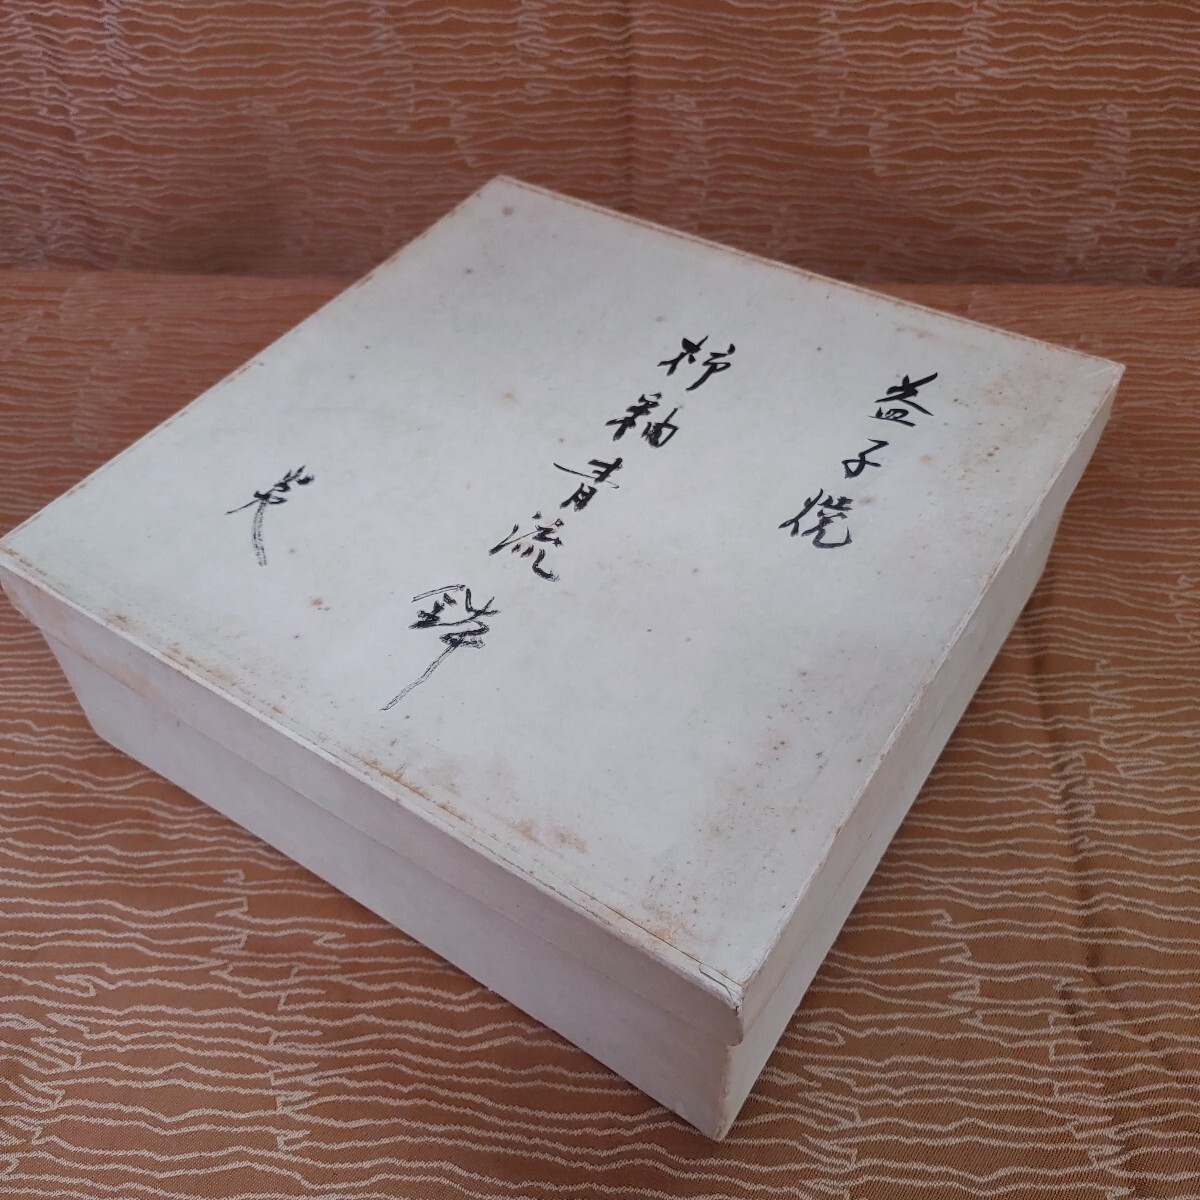 益子焼
柿釉青流鉢